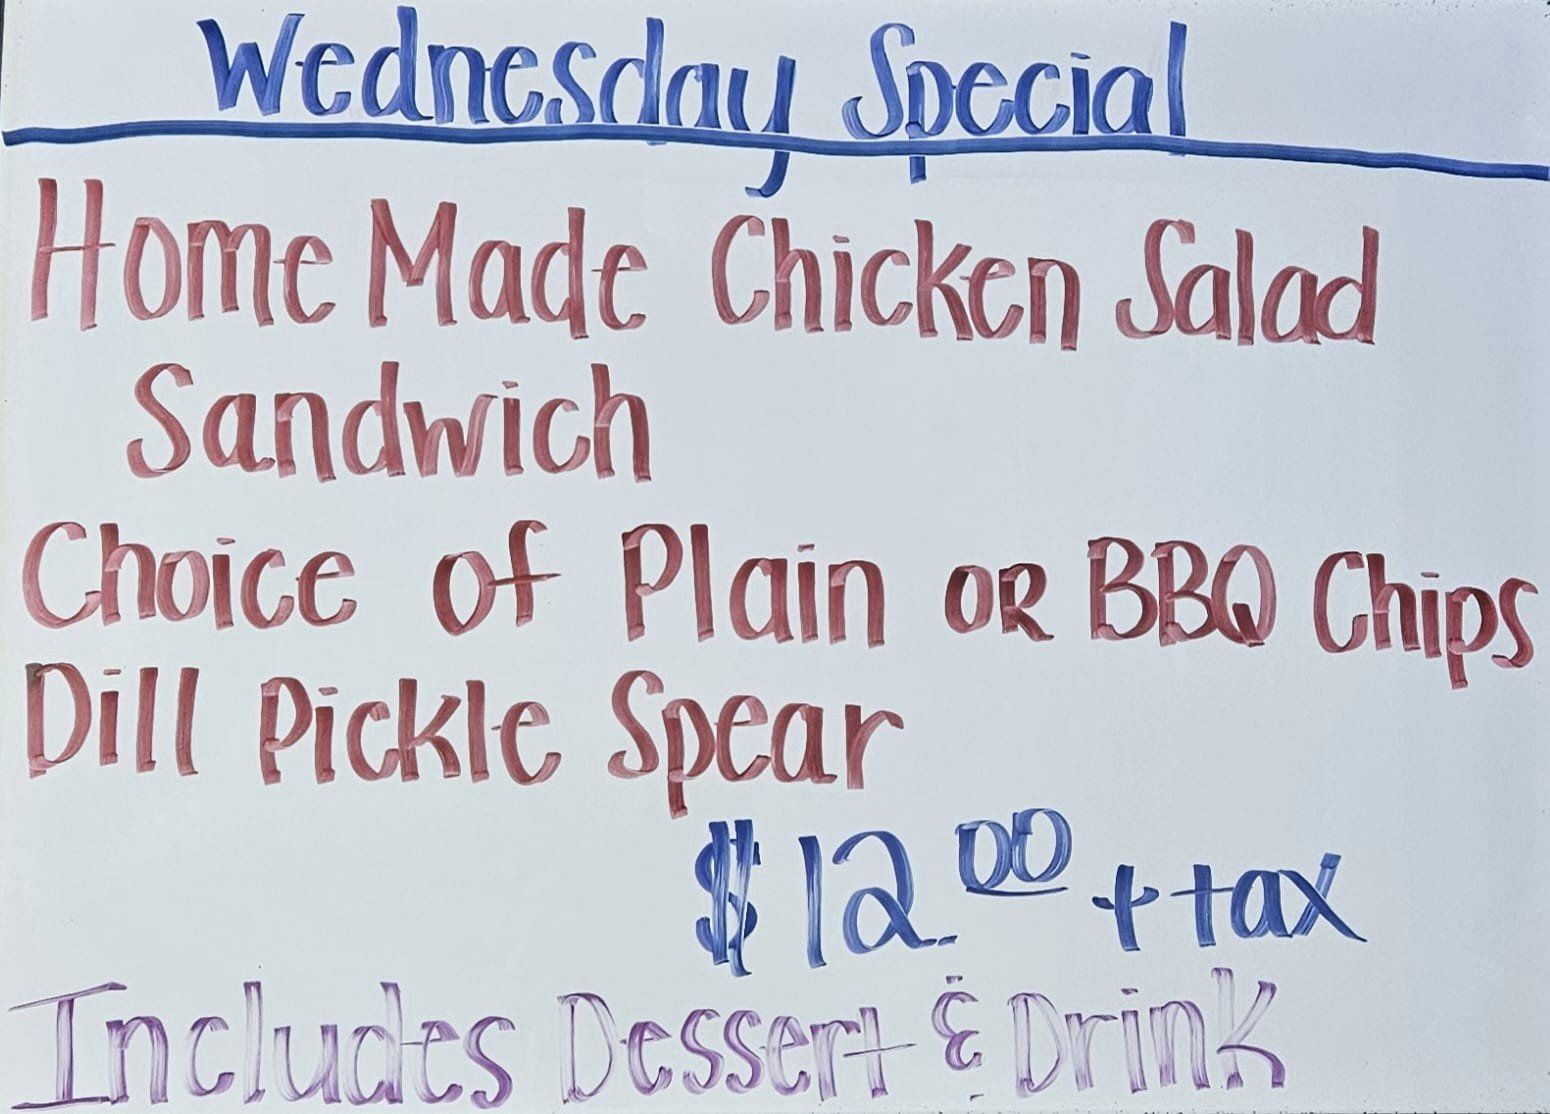 Wednesday Special
Home Made Chicken Salad
Sandwich
Choice of Plain OR BBQ Chips
Dill Pickle Spear
$12.00 + tax
Includes Dessert & Drink